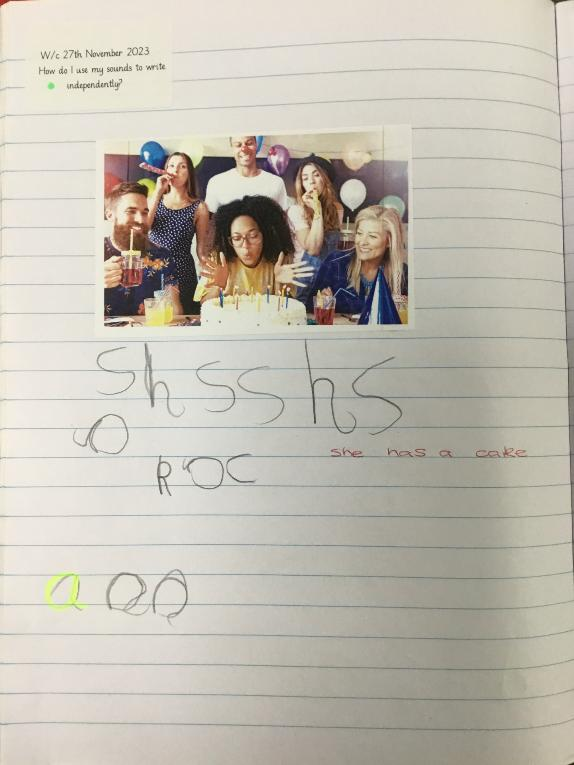 W/c 27th November 2023
How do I use my sounds to write
independently?
shsshs
a
Roc
she has a cake
a a a